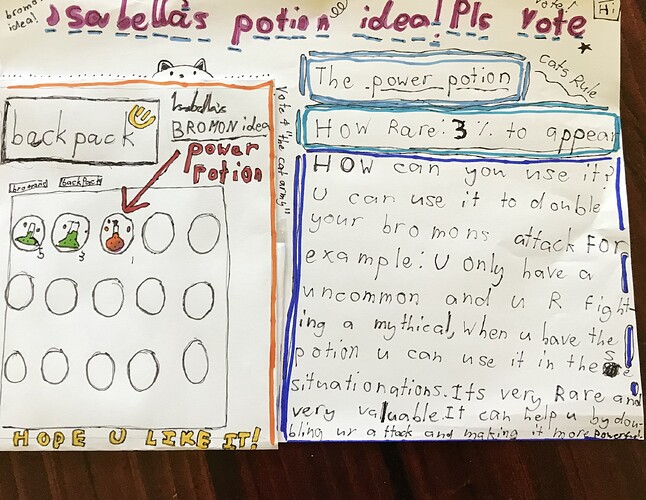 bromon idea!
Isabella's potion idea! Pls vote
vote!
Hi
Cats Rule
Isabella's
BROMON idea
backpack
power
potion
bromons
backpack
5
3
1
HOPE U LIKE IT!
Vote 4 "the cat army"
The power potion
HOW Rare: 3% to appear
HOW can you use it?
U can use it to double
your bromons attack For
example: U only have a
uncommon and u R fight-
ing a mythical, When u have the
potion u can use it in these
situationations. Its very Rare and
very valuable. It can help u by dou-
bling ur attack and making it more powerful!